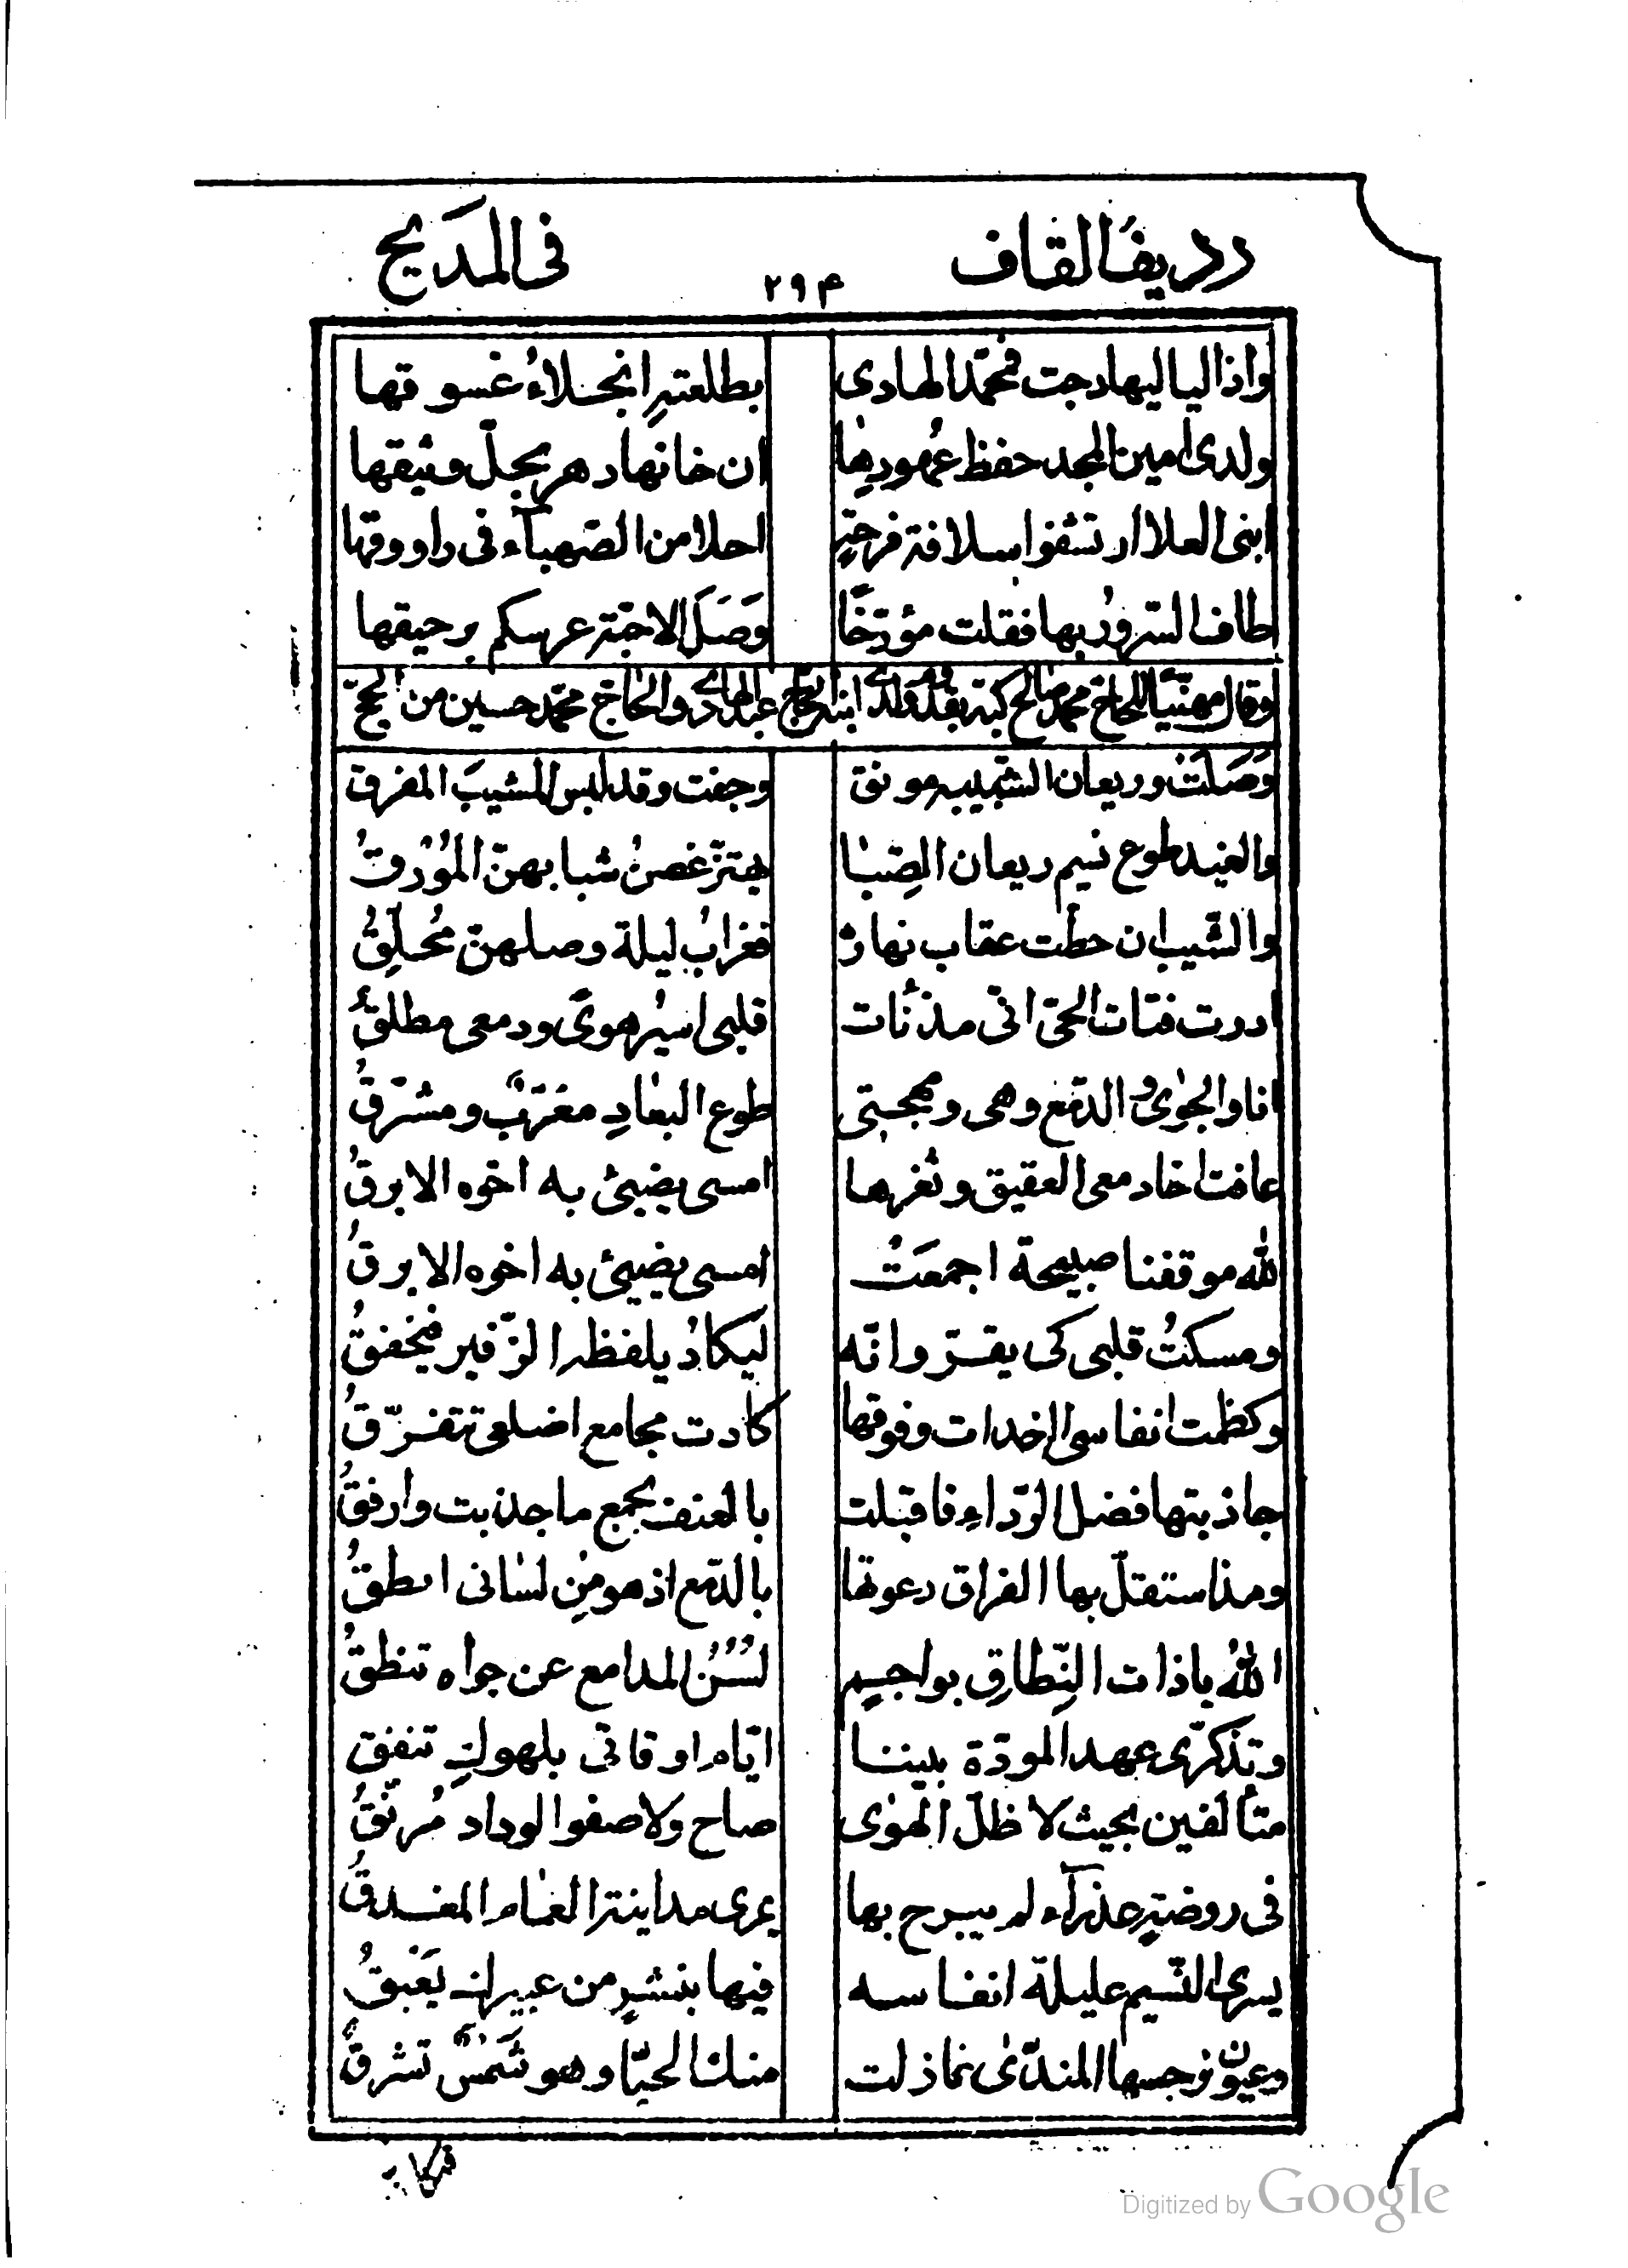 رديف القاف ٢٩٤ فى المديح
واذا لياليها دجت فمحمّد الهادى بطلعته انجلاءُ غسوقها
ولدى امين المجد حفظ عُهودها ان خانها دهر بحلّ وثيقها
ابنى العلا ارتشفوا سلافة فرحةٍ احلا من الصّهباء فى راووقها
طاف السّرورُ بها فقلت مؤرّخًا وَصَلَ الاحبّة عرسكم برحيقها
وقال مهنّيًا للحاج محمد صالح كبه بقدوم ولدى ابنه الحاج عبد الهادى والحاج محمّد حسين من الحجّ
وَصَلَتْ وريعان الشّبيبه مونق وجفت وقد لبس المشيبَ المفرق
والغيد طوع نسيم ريعان الصِّبا يهتزّ غصنُ شبابهنّ المُوْرقُ
والشّيب ان حطّت عقاب نهاره فغرابُ ليلة وصلهنّ مُحلِّقُ
ادرت فتات الحىّ انّى مذنأت قلبى اسيُر هوىً ودمعى مطلقُ
انا والجوىٰ و الدّمع وهى ومهجتى طوع البعادِ مغرّبٌ ومشرّقُ
عافت اخا دمعى العقيق وثغرها امسى يضيئ به اخوه الابرقُ
لله موقفنا صبيحة اجمعَتْ امسى يضيئ به اخوه الابرقُ
ومسكتُ قلبى كى يقرّ وانّه ليكادُ يلفظه الزّفير فيخفقُ
وكظمت انفاسى الخدات وفوقها كادت مجامع اضلعى تتفرّقُ
جاذبتها فضل الرّداءِ فاقبلت بالعنف تجمع ما جذبت وارفقُ
ومذ استقلّ بها الفراق دعوتها بالدّمع اذ هو من لسانى انطقُ
اللهُ ياذات النِّطاقِ بواجمٍ لُسُنُ المدامع عن جواه تنطقُ
وتذكّرى عهد المودّة بيننا ايّام اوقاتى بلهوكِ تنفق
متألفين بحيث لا ظلّ الهوىٰ صاح ولا صفو الوداد مُرنّقُ
فى روضةٍ عذراء لم يبرح بها يمرى مداينه الغمام المغدقُ
يسرى النّسيم عليلة انفاسه فيها بنشرٍ من عبيرك يَعْبقُ
وعيون نرجسها المندّىٰ غازلت منك المحيّا وهو شَمْسٌ تشرقُ
Digitized by Google